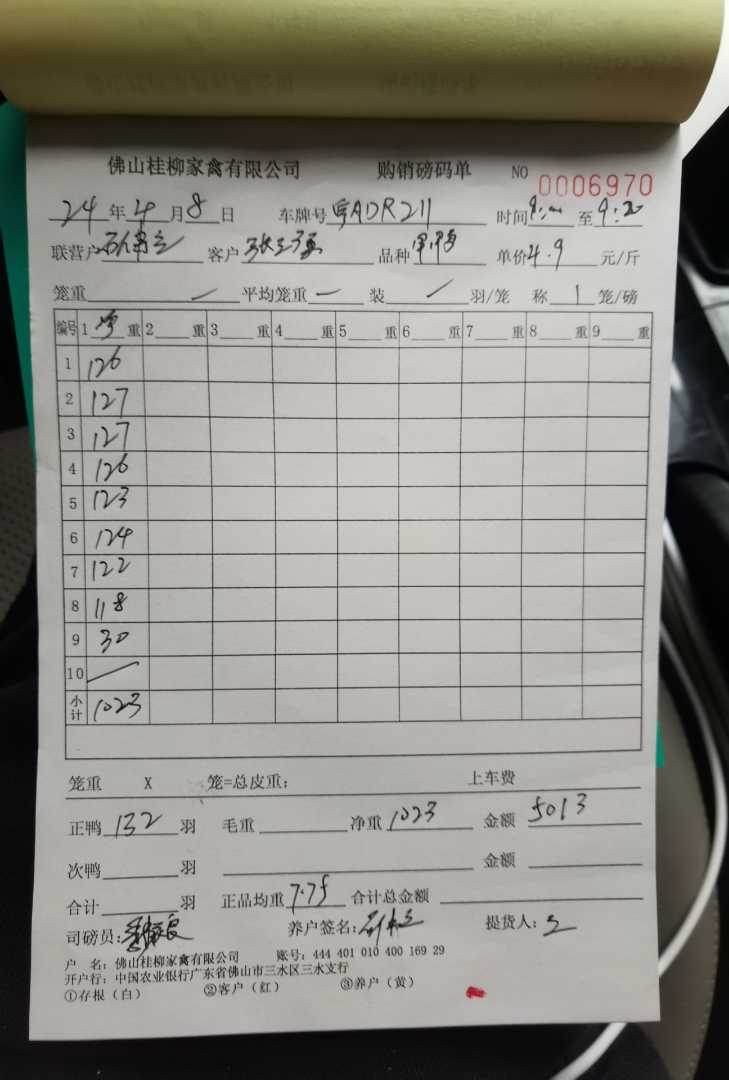 佛山桂柳家禽有限公司 购销磅码单 NO 0006970
24年4月8日 车牌号粤ADR211 时间9: 至9:20
联营户 客户张 品种 单价4.9元/斤
笼重 平均笼重 装 羽/笼 称1笼/磅
编号 1 重 2 重 3 重 4 重 5 重 6 重 7 重 8 重 9 重
1 126
2 127
3 127
4 126
5 123
6 124
7 122
8 118
9 30
10
小计 1023
笼重 X 笼=总皮重: 上车费
正鸭132羽 毛重 净重1023 金额5013
次鸭 羽 金额
合计 羽 正品均重7.75 合计总金额
司磅员: 养户签名: 提货人:
户 名: 佛山桂柳家禽有限公司 账号: 444 401 010 400 169 29
开户行: 中国农业银行广东省佛山市三水区三水支行
①存根(白) ②客户(红) ③养户(黄)